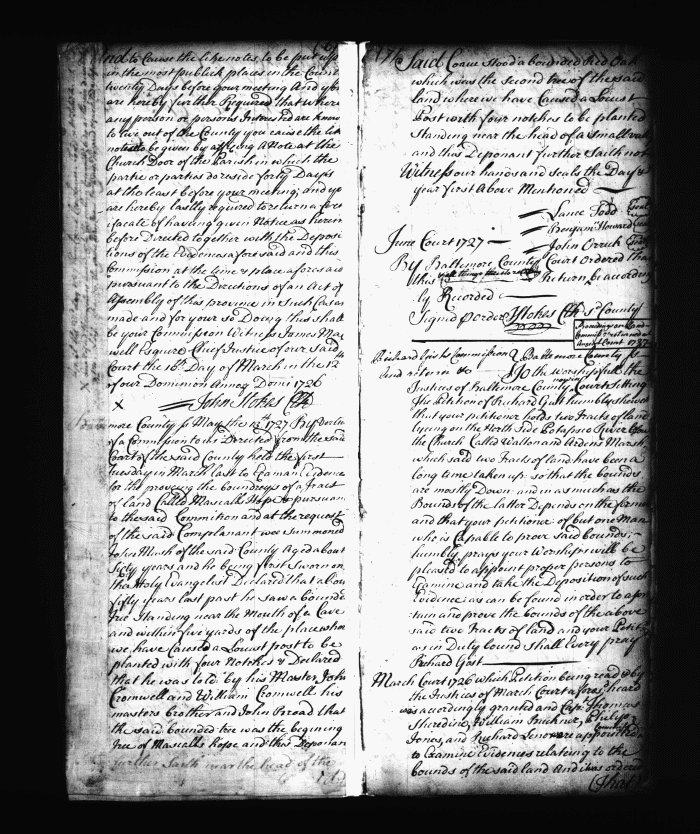 and to Cause the like notes to be put up
in the most publick places in the County
twenty Days before your meeting And you
are hereby further Required that where
any person or persons Interested are know
to live out of the County you cause the like
notice to be given by affixing a Note at the
Church Door of the Parish in which the
partie or parties do reside forty Days
at the least before your meeting; and yo
are hereby lastly required to return a Cert
ificate of having given Notice as herein
before Directed together with the Deposi
tions of the Evidences aforesaid and this
Commission at the time & place aforesaid
pursuant to the Directions of an Act of
Assembly of this province in such Case
made and for your so Doing this shall
be your Commission Witness James Max
well Esquire Chief Justice of our said
Court the 10th Day of March in the 12th
of our Dominion Anno Domi 1726
x John Stokes Clk
more County ss May the 12th 1727 By Vertue
of a Commission to us Directed from the said
Court of the said County held the first
Tuesday in March last to Examan Evidence
for the proveing the boundrys of a Tract
of land Called Mascalls Hope & pursuant
to the said Commition and at the request
of the said Complanant wee Summoned
John Mash of the said County Aged about
Sixty years and he being first Sworn on
the Holy Evangelist Declared that about
fifty years last past he saw a bounde
tree Standing near the Mouth of a Cave
and within five yards of the place where
we have Caused a Locust post to be
planted with four Notches & Declared
that he was told by his Master John
Cromwell and William Cromwell his
masters brother and John Broad that
the said bounded tree was the begining
tree of Mascalls hope and this Deponan
further Saith near the head of the
Said Coave stood a bounded Red Oak
which was the second tree of the said
land where we have Caused a Locust
Post with four notches to be planted
Standing near the head of a small vall
and this Deponant further Saith not
Witness our hands and seals the Day &
year first Above Mentioned
Lance Todd
Benjamn Howard
John Orrick
June Court 1727
By Baltemore County Court Ordered that
this Return be according
ly Recorded
Signed p order J Stokes Clk ss County
Proceedings on Land
Commissns returned to
August Court 1727
Richard Gists Commission & Baltemore County ss
and return &c To the worshipfull the
Justices of Baltemore County Court Sitting
The Petition of Richard Gist humbly sheweth
that your petitioner holds two Tracts of land
lyeing on the North Side Petapsco River
the Church Called Walton and Ardens Marsh
which said two Tracts of land have been a
long time taken up: so that the bounds
are mostly Down: and in as much as the
Bounds of the latter Depends on the former
and that your petitioner: of but one Man
who is Capable to prove said bounds;
humbly prays your Worships will be
pleased to appoint proper persons to
Examine and take the Deposition of such
Evidence as can be found in order to a
tain and prove the bounds of the above
said two Tracts of land and your Petitr
as in Duty bound shall Every pray
Richard Gist
March Court 1726 which Petition being read & by
the Justices of March Court afores heard
was accordingly granted and Capt Thomas
Sheredine, William Buckner, Philip
Jones, and Richard were appointed
to Examine Evidences relating to the
bounds of the said land And it was ordered
That